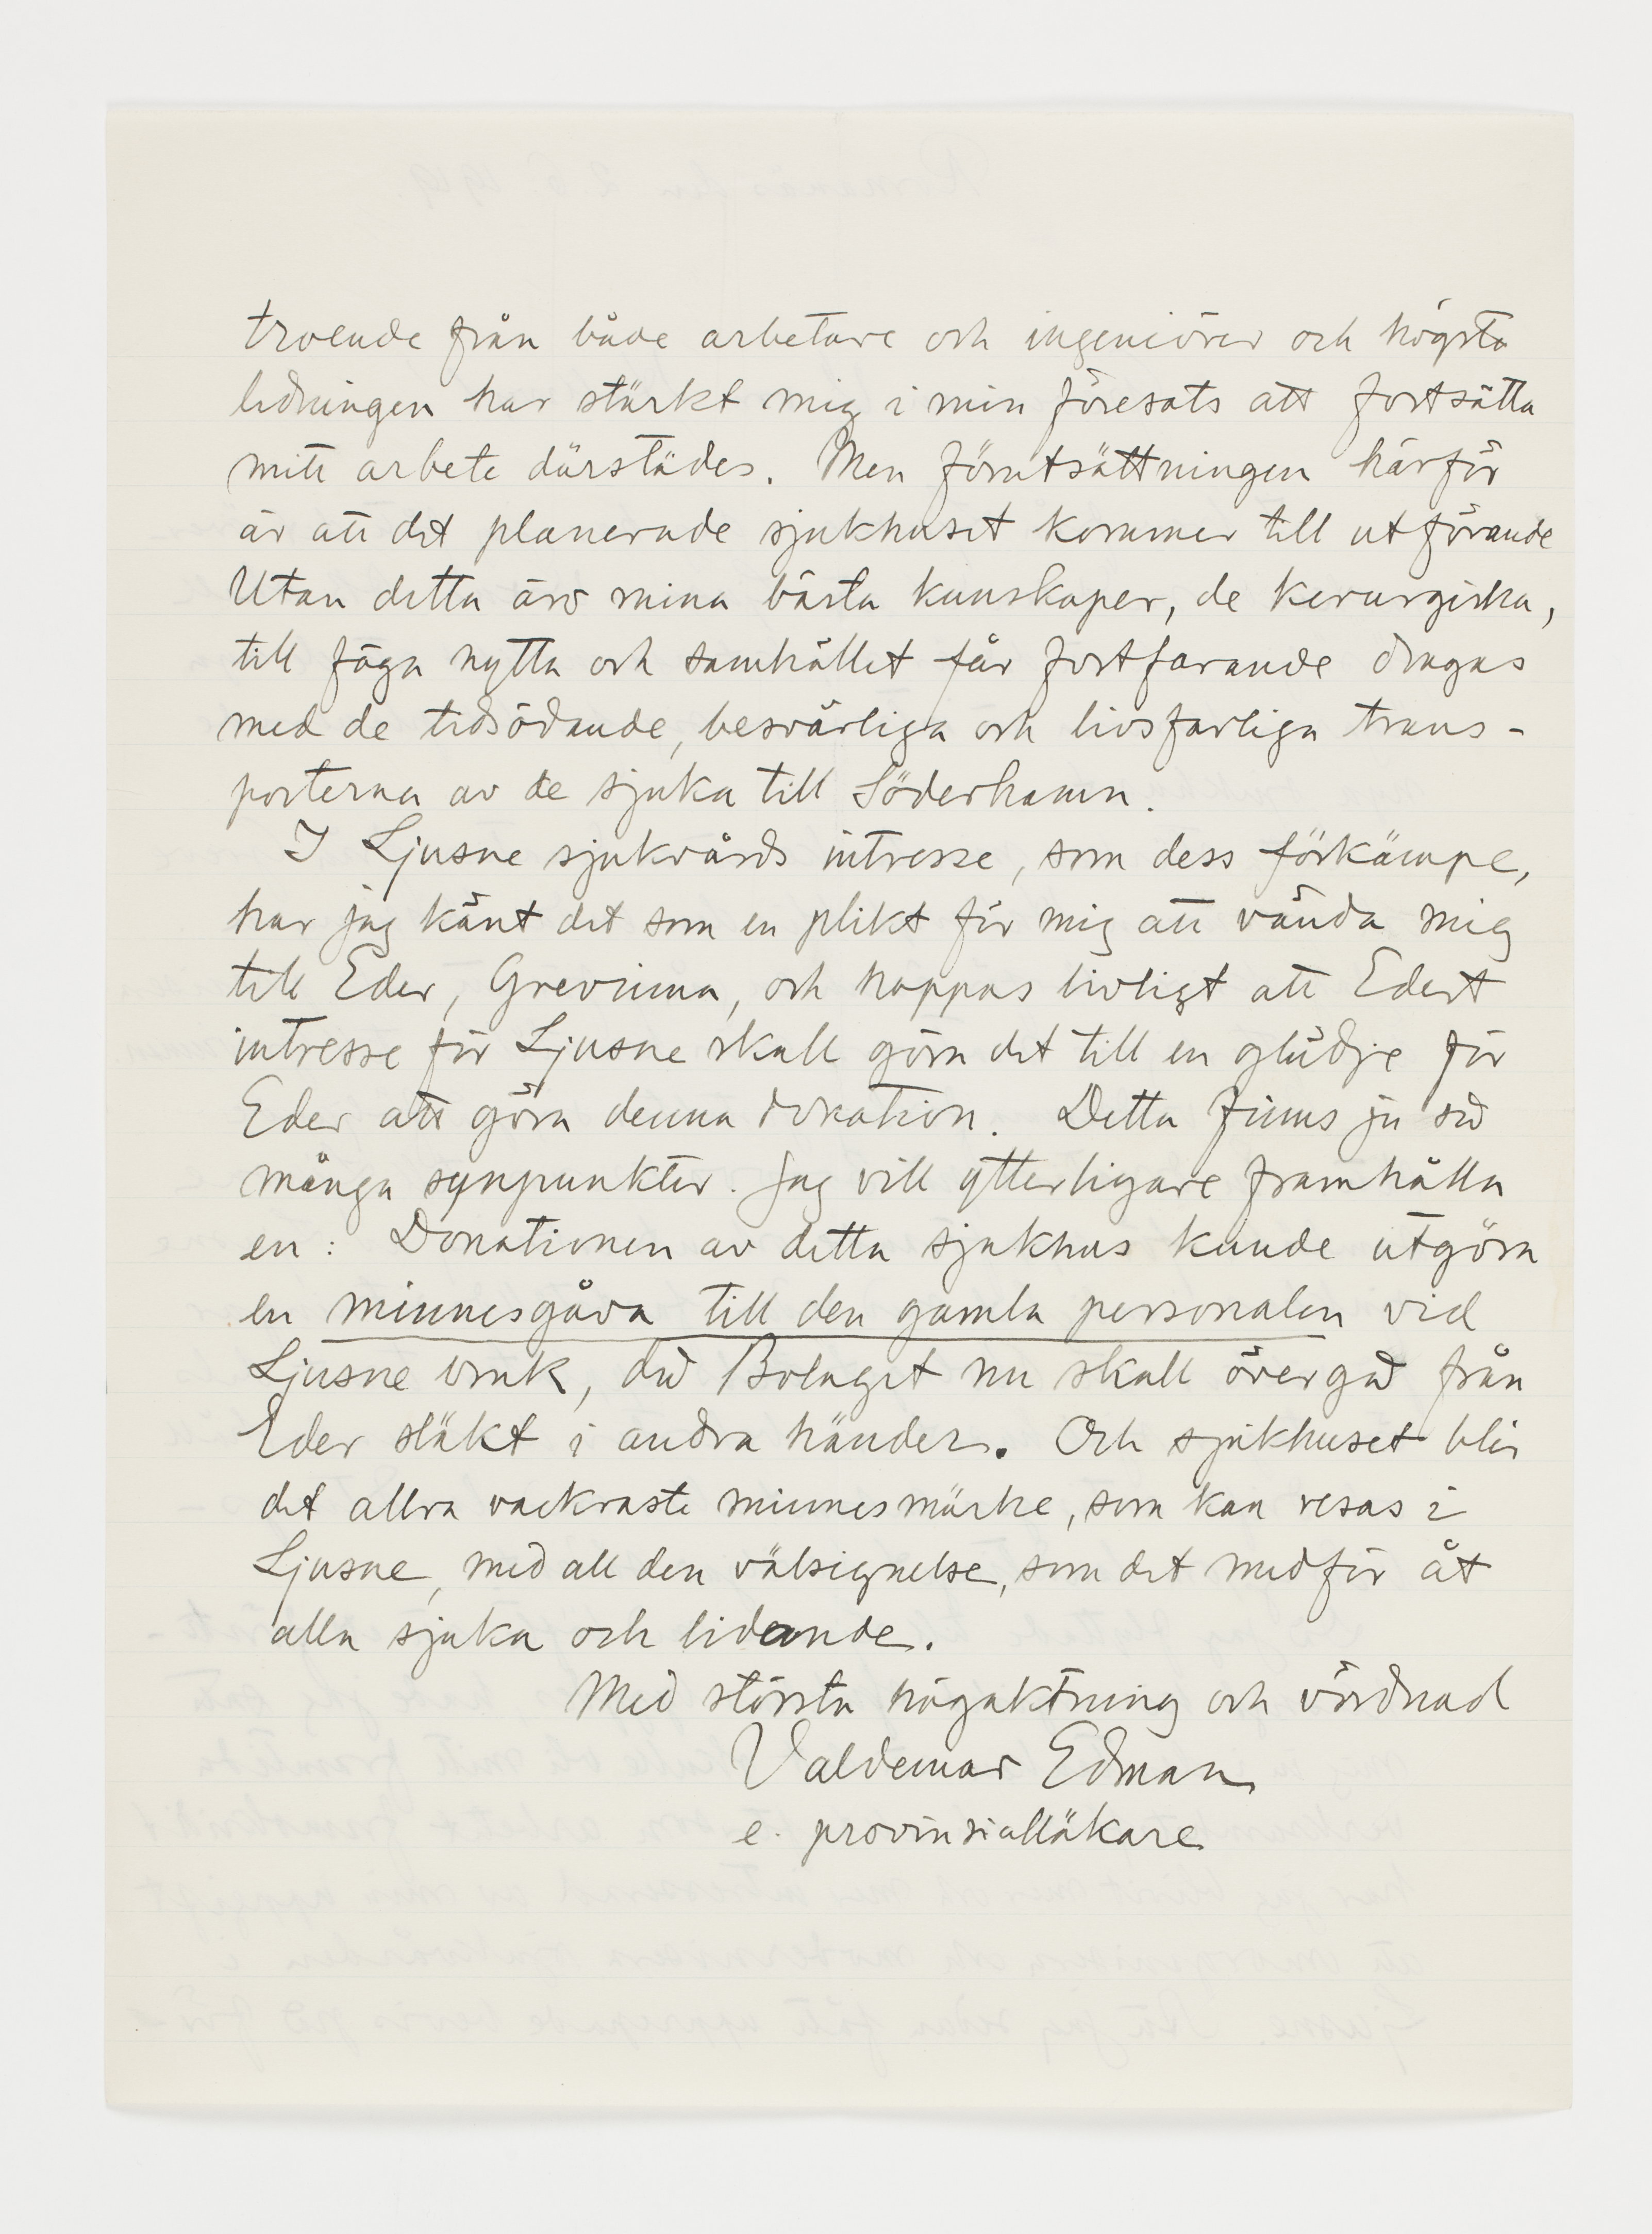 troende från både arbetare och ingeniörer och högsta
ledningen har stärkt mig i min föresats att fortsätta
mitt arbete därstädes. Men förutsättningen härför
är att det planerade sjukhuset kommer till utförande
Utan detta äro mina bästa kunskaper, de kirurgiska,
till föga nytta och samhället får fortfarande dragas
med de tidsödande, besvärliga och livsfarliga trans-
porterna av de sjuka till Söderhamn.
I Ljusne sjukvårds intresse, som dess förkämpe,
har jag känt det som en plikt för mig att vända mig
till Eder, Grevinna, och hoppas livligt att Edert
intresse för Ljusne skall göra det till en glädje för
Eder att göra denna donation. Detta finns ju så
många synpunkter. Jag vill ytterligare framhålla
en: Donationen av detta sjukhus kunde utgöra
en minnesgåva till den gamla personalen vid
Ljusne bruk, då Bolaget nu skall övergå från
Eder släkt i andra händer. Och sjukhuset blir
det allra vackraste minnesmärke, som kan resas i
Ljusne, med all den välsignelse, som det medför åt
alla sjuka och lidande.
Med största högaktning och vördnad
Valdemar Edman
e. provinsialläkare